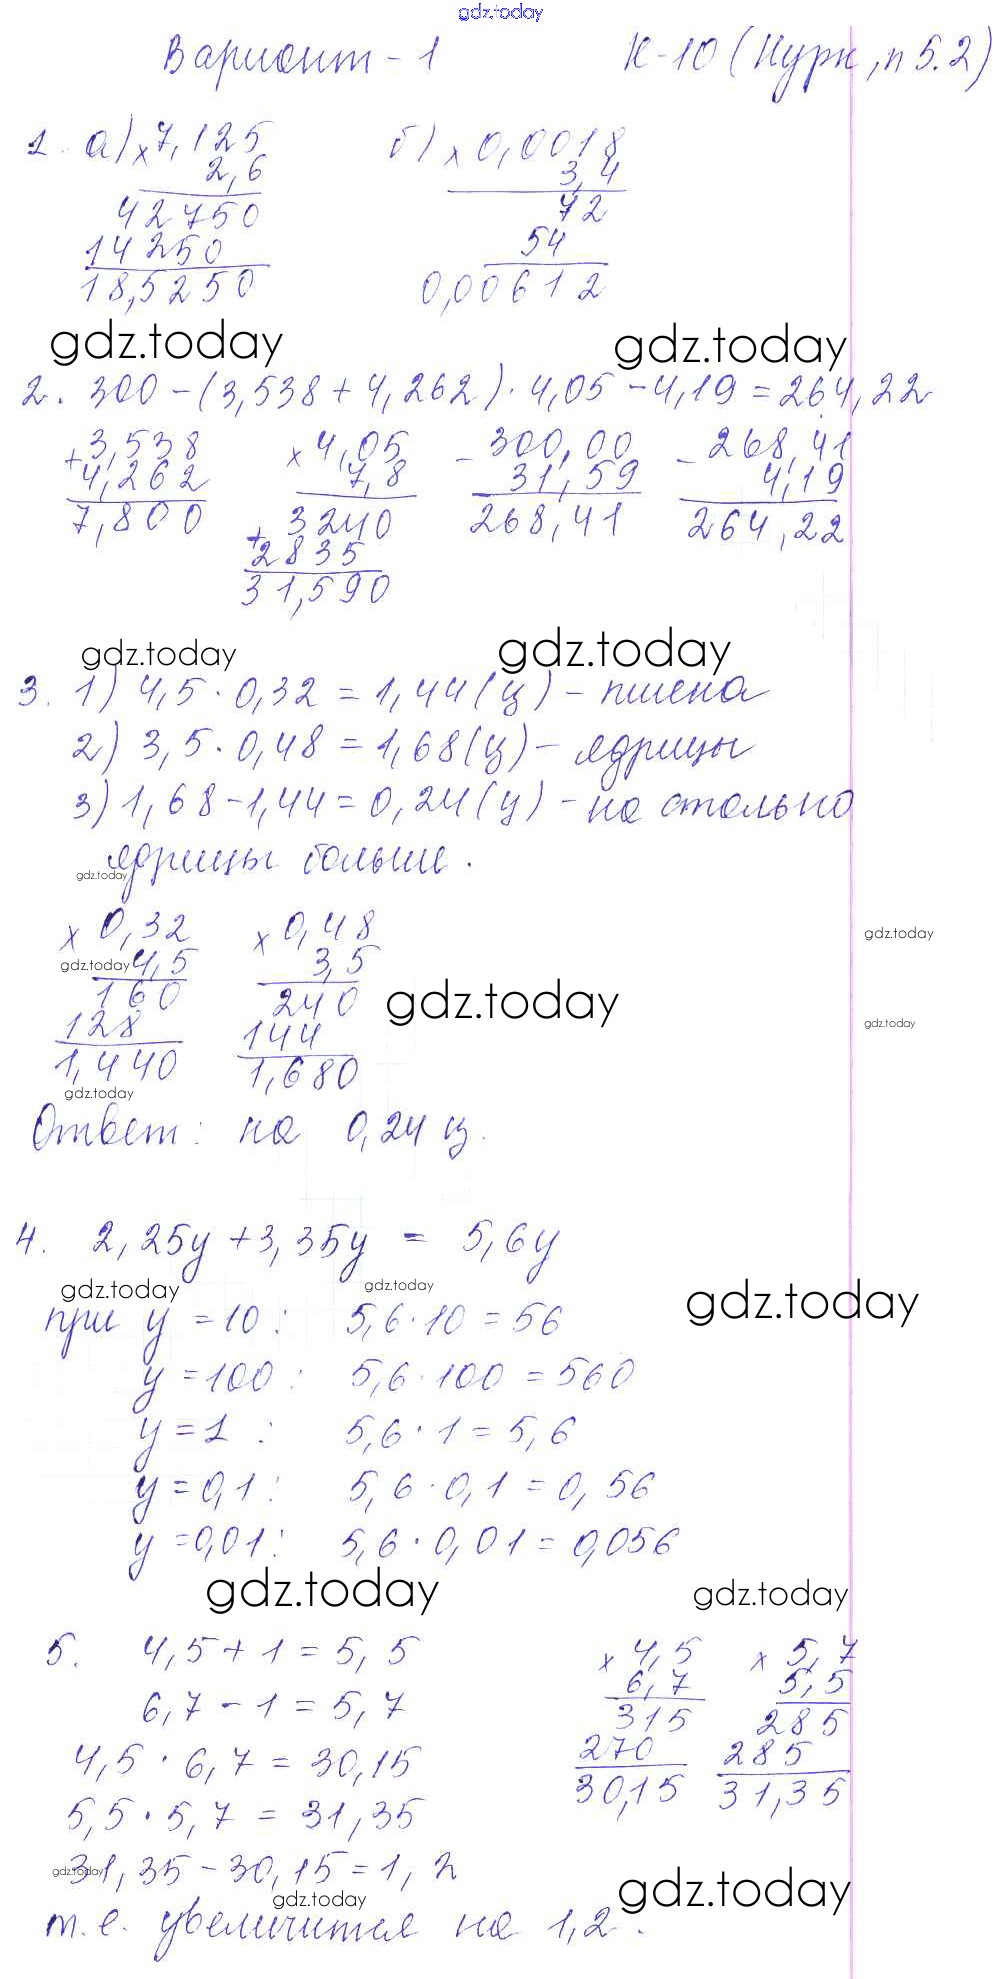 gdz.today
Вариант - 1 К-10 (Нурк, п 5.2)
1. а) × 7,125 б) × 0,0018
2,6 3,4
42750 72
14250 54
18,5250 0,00612
gdz.today gdz.today
2. 300 - (3,538 + 4,262) · 4,05 - 4,19 = 264,22
+ 3,538 × 4,05 - 300,00 - 268,41
4,262 7,8 31,59 4,19
7,800 3240 268,41 264,22
+ 2835
31,590
gdz.today gdz.today
3. 1) 4,5 · 0,32 = 1,44 (ц) - пшена
2) 3,5 · 0,48 = 1,68 (ц) - ядрицы
3) 1,68 - 1,44 = 0,24 (ц) - на столько
ядрицы больше.
gdz.today
× 0,32 × 0,48 gdz.today
gdz.today 4,5 3,5
160 240 gdz.today
128 144 gdz.today
1,440 1,680
gdz.today
Ответ: на 0,24 ц.
4. 2,25y + 3,35y = 5,6y
gdz.today gdz.today gdz.today
при y = 10 : 5,6 · 10 = 56
y = 100 : 5,6 · 100 = 560
y = 1 : 5,6 · 1 = 5,6
y = 0,1 : 5,6 · 0,1 = 0,56
y = 0,01 : 5,6 · 0,01 = 0,056
gdz.today gdz.today
5. 4,5 + 1 = 5,5 × 4,5 × 5,7
6,7 - 1 = 5,7 6,7 5,5
315 285
4,5 · 6,7 = 30,15 270 285
5,5 · 5,7 = 31,35 30,15 31,35
gdz.today 31,35 - 30,15 = 1,2
gdz.today gdz.today
т.е. увеличится на 1,2.